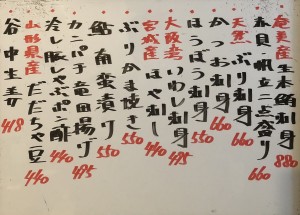 奄美産 生本鮪刺身 880
赤貝帆立二点盛り 660
天然ぶり刺身 660
かつお刺身 660
ほうぼう刺身 550
大阪産いわし刺身 440
宮城産ほや刺し 550
ぶりかま焼き 550
鮎南蛮漬り 495
カンパチ竜田揚げ 440
冷し豚しゃぶポン酢
山形県産だだちゃ豆 440
谷中生姜 418